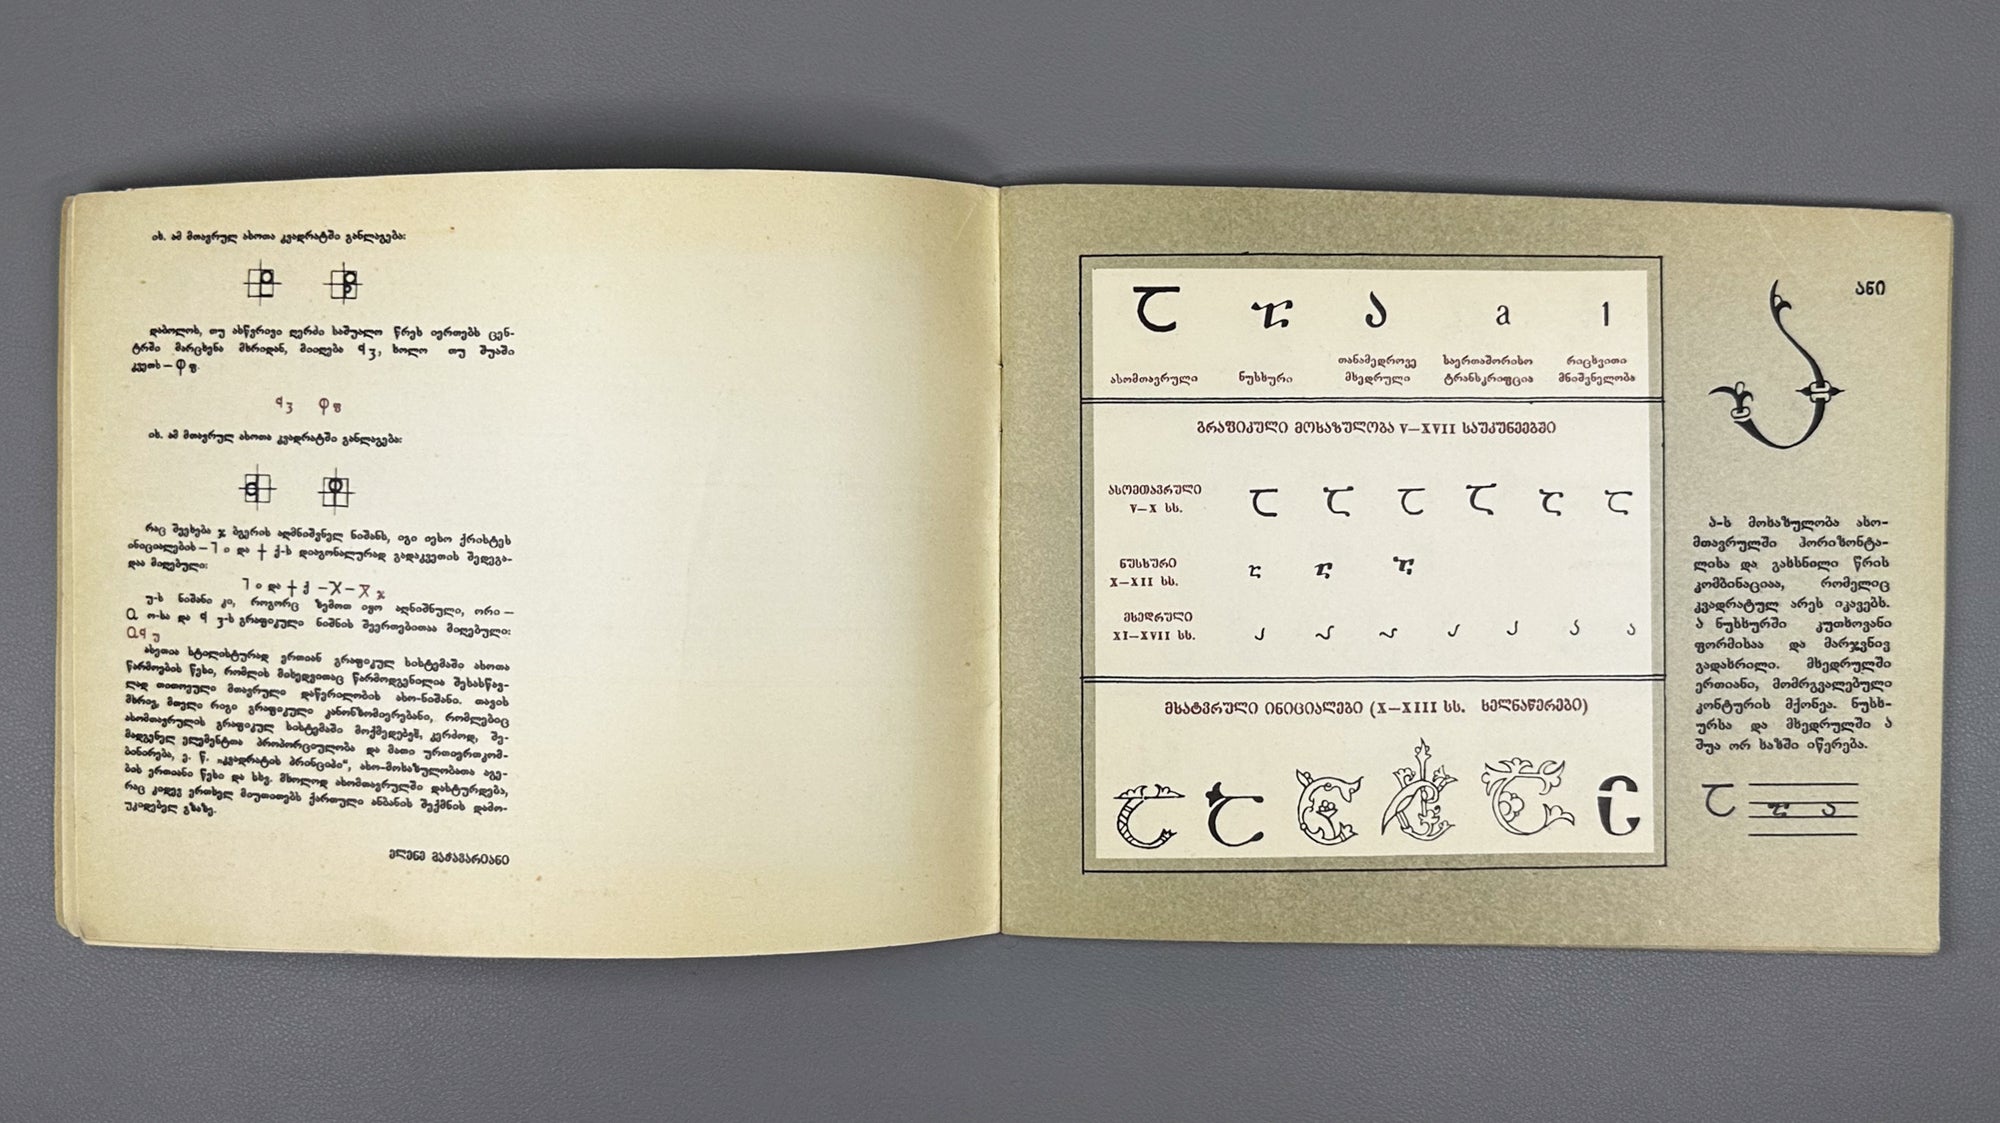 იხ. ამ მთავრულ ასოთა კვადრატში განლაგება:
დაბოლოს, თუ ასწვრივი ღერძი საშუალო წრეს იერთებს ცენ-
ტრში მარცხენა მხრიდან, მიიღება Ⴅ ვ, ხოლო თუ შუაში
კვეთს — Ⴔ ფ.
Ⴅ ვ Ⴔ ფ
იხ. ამ მთავრულ ასოთა კვადრატში განლაგება:
რაც შეეხება ჯ ბგერის აღმნიშვნელ ნიშანს, იგი იესო ქრისტეს
ინიციალების — Ⴈ ი და Ⴕ ქ-ს დიაგონალურად გადაკვეთის შედეგა-
დაა მიღებული:
Ⴈ ი და Ⴕ ქ – X – Ⴟ ჯ
უ-ს ნიშანი კი, როგორც ზემოთ იყო აღნიშნული, ორი —
Ⴍ ო-სა და Ⴅ ვ-ს გრაფიკული ნიშნის შეერთებითაა მიღებული:
ႭႥ უ
ასეთია სტილისტურად ერთიან გრაფიკულ სისტემაში ასოთა
წარმოების წესი, რომლის მიხედვითაც წარმოდგენილია შესასწავ-
ლად თითოეული მთავრული დაწერილობის ასო-ნიშანი. თავის
მხრივ, მთელი რიგი გრაფიკული კანონზომიერებანი, რომლებიც
ასომთავრულის გრაფიკულ სისტემაში მოქმედებენ, კერძოდ, შე-
მადგენელ ელემენტთა პროპორციულობა და მათი ურთიერთკომ-
ბინირება, ე. წ. „კვადრატის პრინციპი“, ასო-მოხაზულობათა აგე-
ბის ერთიანი წესი და სხვ. მხოლოდ ასომთავრულში დასტურდება,
რაც კიდევ ერთხელ მიუთითებს ქართული ანბანის შექმნის დამო-
უკიდებელ გზაზე.
ელენე მაჭავარიანი
Ⴀ ⴀ ა a 1
ასომთავრული ნუსხური თანამედროვე მხედრული საერთაშორისო ტრანსკრიფცია რიცხვითი მნიშვნელობა
გრაფიკული მოხაზულობა V—XVII საუკუნეებში
ასომთავრული
V—X სს.
Ⴀ Ⴀ Ⴀ Ⴀ Ⴀ Ⴀ
ნუსხური
X—XII სს.
ⴀ ⴀ ⴀ
მხედრული
XI—XVII სს.
ა ა ა ა ა ა ა
მხატვრული ინიციალები (X—XIII სს. ხელნაწერები)
Ⴀ Ⴀ Ⴀ Ⴀ Ⴀ Ⴀ
ანი
ა
ა-ს მოხაზულობა ასო-
მთავრულში ჰორიზონტა-
ლისა და გახსნილი წრის
კომბინაციაა, რომელიც
კვადრატულ არეს იკავებს.
ა ნუსხურში კუთხოვანი
ფორმისაა და მარჯვნივ
გადახრილი. მხედრულში
ერთიანი, მომრგვალებული
კონტურის მქონეა. ნუსხ-
ურსა და მხედრულში ა
შუა ორ ხაზში იწერება.
Ⴀ ⴀ ა